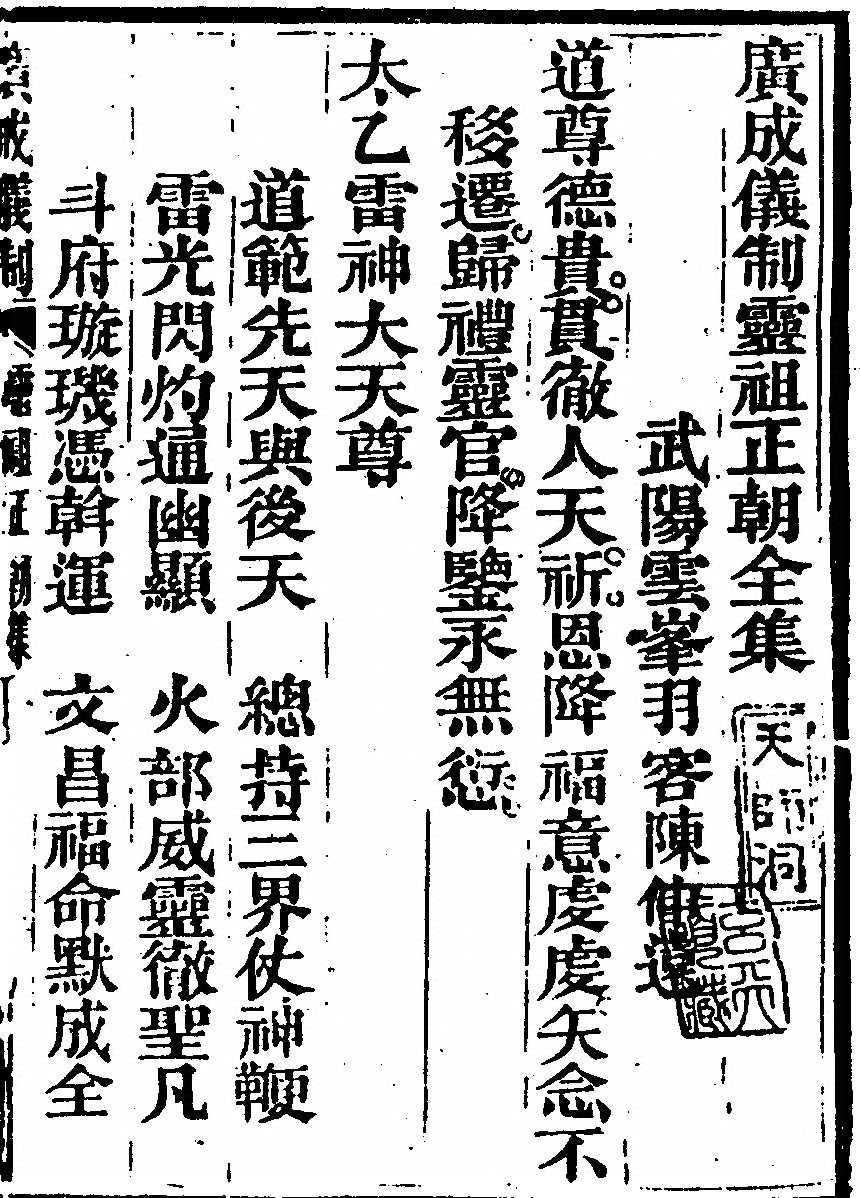 廣成儀制靈祖正朝全集
天師洞
武陽雲峯羽客陳仲遠
道尊德貴貫徹人天祈恩降福意虔虔矢念不
移遷歸禮靈官降鑒永無愆
太乙雷神大天尊
道範先天與後天　總持三界仗神鞭
雷光閃灼通幽顯　火部威靈徹聖凡
斗府璇璣憑斡運　文昌福命默成全
廣成儀制　靈祖正朝集